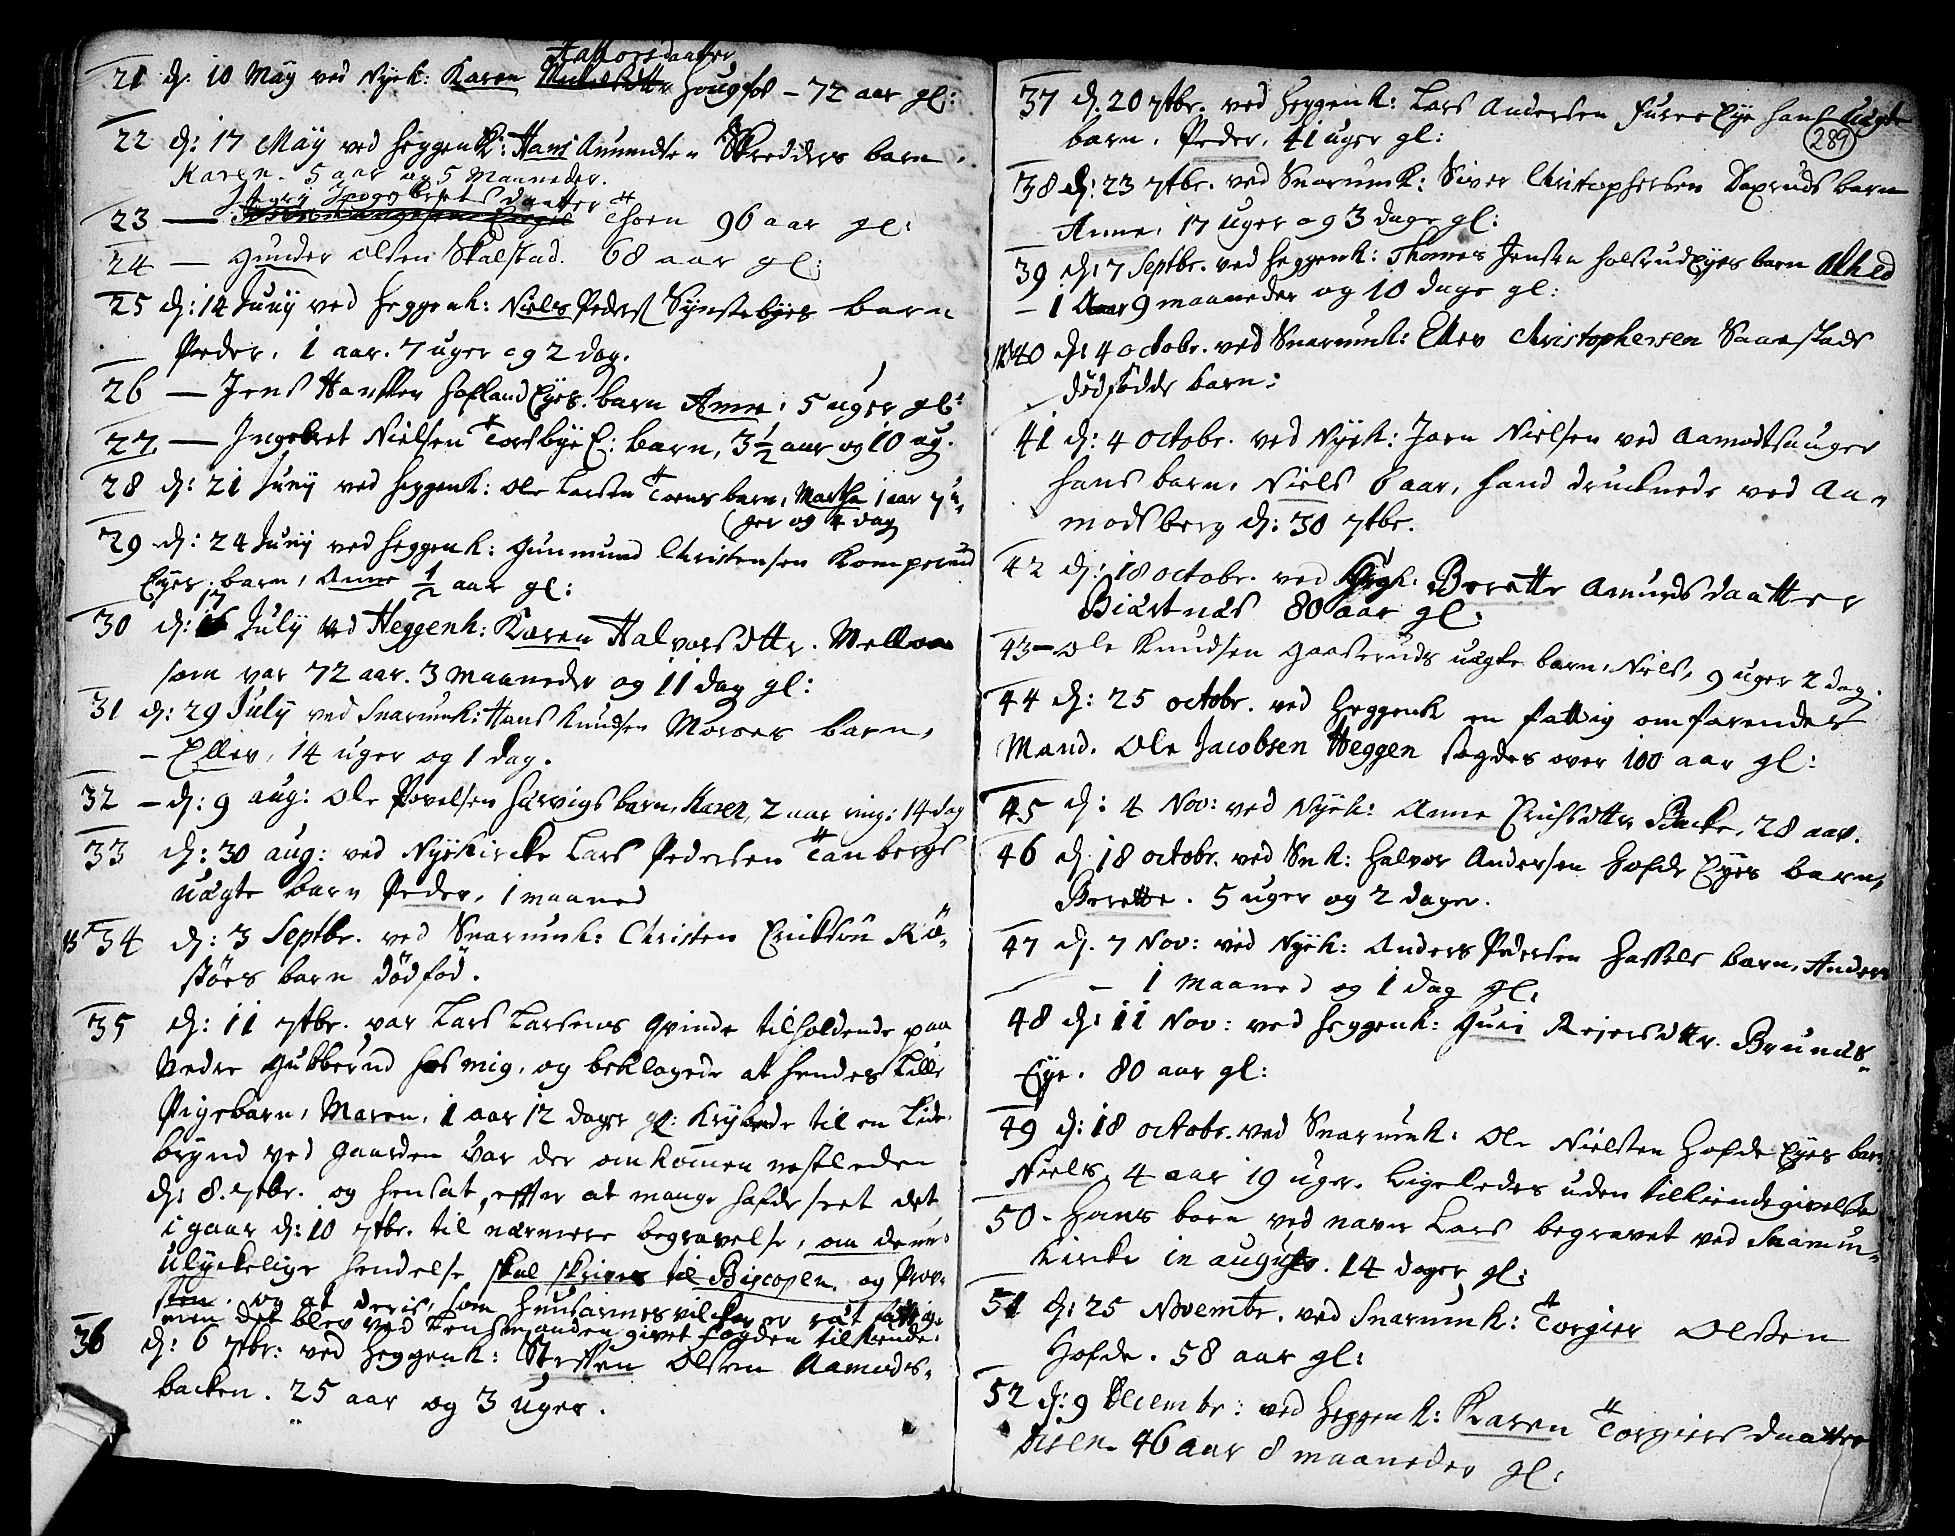 Halvorsdaatter
21 d. 10 Maÿ ved Nyek: Karen Hougfos - 72 aar gl:
22 d: 17 Maÿ ved Heggenk: Hans Amundsen Skredders barn.
Karen. 5 aar og 5 Maaneder.
Ingebretsdaatter
23 — Thoen 96 aar gl:
24 — Gunder Olsen Skalstad. 68 aar gl:
25 d: 14 Junÿ ved Heggenk: Niels Peders Synstebyes barn
Peder. 1 aar. 7 uger og 2 dag.
26 — Jens Hansen Hofland Eyes barn Anne. 5 uger gl:
27. — Ingebret Nielsen Tordbye E: barn, 3½ aar og 10 ug.
28 d: 21 Junÿ ved Heggenk: Ole Larsen Toens barn, Martha 1 aar 7 u-
ger og 4 dag
29 d: 24 Junÿ ved Heggenk: Gunmund Christensen Komperud
Eyes barn, Anne ½ aar gl:
17
30 d: 16 Julÿ ved Heggenk: Karen Halvorsdttr. Melloa
som var 72 aar. 3 Maaneder og 11 dag gl:
31 d: 29 Julÿ ved Snarumk: Hans Knudsen Moroes barn,
- Ellev, 14 uger og 1 dag.
32 - d: 9 aug: Ole Povelsen Hurvigs barn, Karen, 2 aar ring: 14 dag
33 d: 30 aug: ved Nyekircke Lars Pedersen Tanbergs
uægte barn Peder, 1 maaned
34 d: 3 Septbr. ved Snarumk: Christen Eriksøn Kø-
støes barn dödfød.
35 d: 11 7tbr. var Lars Larsens Qvinde tilholdende paa
Nedre Gubberud hos mig, og beklagede at hendes lille
Pigebarn, Maren, 1 aar 12 dage gl: Krybede til en lide
brynd ved Gaarden var der omkommen nestleden
d: 8. 7tbr. og hensat, effter at mange hafde seet det
i gaar d: 10 7tbr. til nærmere begravelse, om denne
ulyckelige hendelse skal skrives til Biscopen og Prov-
sten. og at deris, som Huusarmes vilkor er ræt fattige
men det blev ved Lensmanden givet fogden tilkiende.
36 d: 6 7tbr: ved Heggenk: Steffen Olsen Aamods-
backen. 25 aar og 3 uger.
289
37 d. 20 7tbr. ved Heggenk: Lars Andersen Furre Eye hans uægte
barn. Peder, 41 uger gl:
38 d: 23 7tbr. ved Snarumk: Siver Christophersen Doxruds barn
Anne, 17 uger og 3 dage gl:
39 d: 7 Septbr. ved Heggenk: Thomas Jensen Holsrud Eyes barn Alhed
- 1 Aar 9 maaneder og 10 dage gl:
40 d: 4 octobr. ved Snarumk: Ellev Christophersen Saastads
dödfödde barn:
41 d: 4 octobr. ved Nyek: Joen Nielsen ved Aamodtsauger
hans barn, Niels 6 aar, hand drucknede ved Aa-
modsberg d: 30 7tbr.
42 d: 18 octobr. ved Hegk: Berette Amundsdaatter
Biærtnæs 80 aar gl:
43 - Ole Knudsen Gaaseruds uægte barn, Niels, 9 uger 2 dag.
44 d: 25 octobr. ved Heggenk en fattig omfarendes
Mand. Ole Jacobsen Heggen sagdes over 100 aar gl:
45 d: 4 Nov: ved Nyek: Anne Erichsdttr Backe, 28 aar.
46 d. 18 octobr. ved Snk: Halvor Andersen Hofde Eyes barn,
Berette. 5 uger og 2 dager.
47 d. 7 Nov: ved Nyek: Anders Pedersen Hassels barn, Anders
- 1 maaned og 1 dag gl:
48 d: 11 Nov: ved Heggenk: Guri Reiersdttr. Brunæs-
Eye. 80 aar gl:
49 d: 18 octobr. ved Snarumk: Ole Nielsen Hofde Eyes barn
Niels, 4 aar 19 uger. Ligeledes uden tilkiendegivelse
50 - hans barn ved navn Lars begravet ved Snarum-
kirke in august. 14 dager gl:
51 d: 25 Novembr. ved Snarumk: Torgier Olssen
Hofde. 58 aar gl:
52 d: 9 Decembr: ved Heggenk: Karen Torgiersdaatter
46 aar 8 maaneder gl: